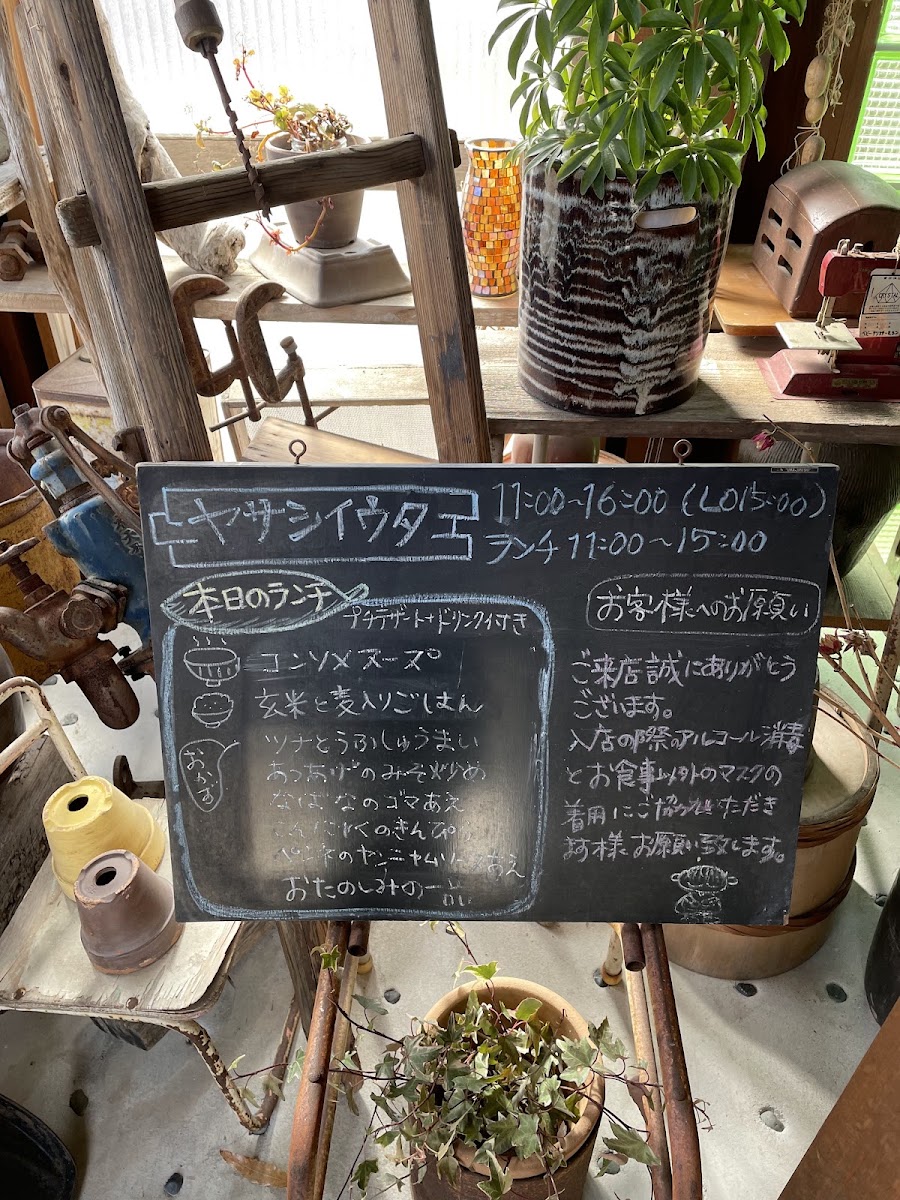 ヤサシイウタ
11:00～16:00 (LO15:00)
ランチ 11:00～15:00
本日のランチ
プチデザート+ドリンク付き
コンソメスープ
玄米と麦入りごはん
おかず
ツナとうふしゅうまい
あつあげのみそ炒め
なばなのゴマあえ
こんにゃくのきんぴら
ペンネのヤンニャムソースあえ
おたのしみの一品
お客様へのお願い
ご来店誠にありがとう
ございます。
入店の際のアルコール消毒
とお食事以外のマスクの
着用にご協力いただき
ます様お願い致します。
CRYSTAL